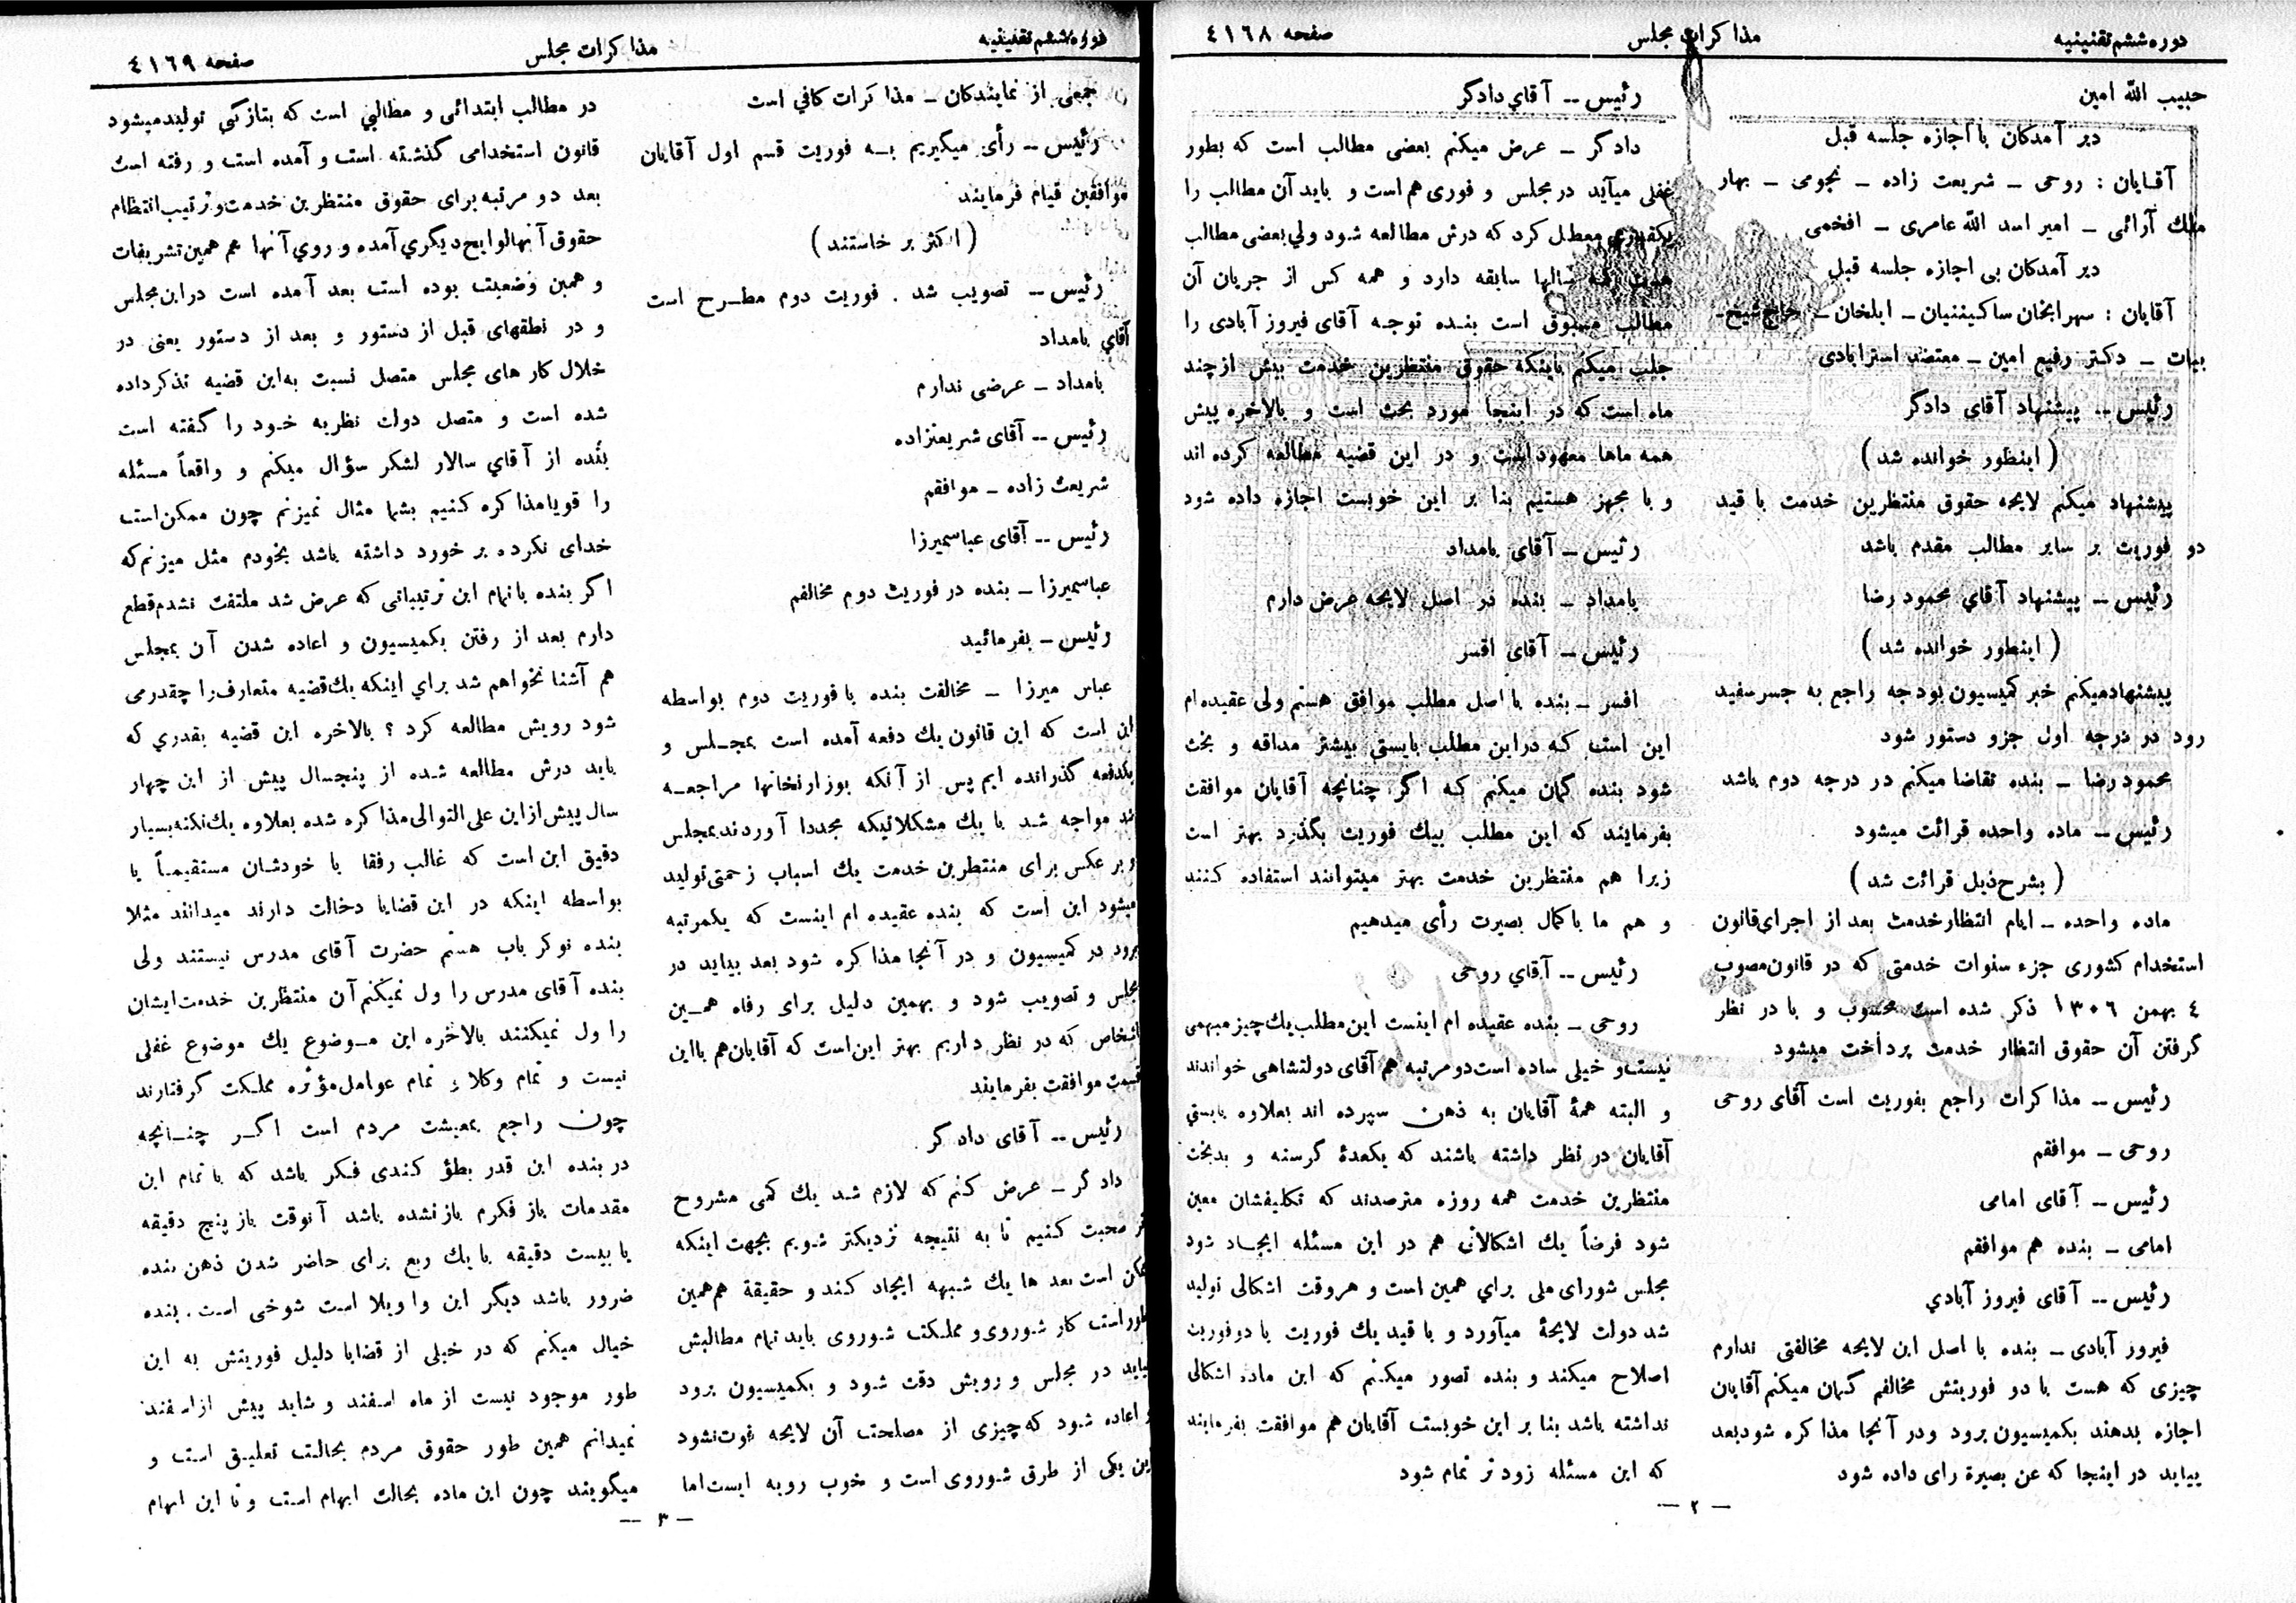 دوره ششم تقنینیه
مذاکرات مجلس
صفحه ٤١٦٨
حبیب الله امین
دیر آمدکان با اجازه جلسه قبل
آقایان : روحی ــ شریعت زاده ــ نجومی ــ بهار
ملك آرائی ــ امیر اسد الله عامری ــ افخمی
دیر آمدکان بی اجازه جلسه قبل
آقایان : سهرابخان ساکینیان ــ ایلخان ــ حاج شیخ ــ
بیات ــ دکتر رفیع امین ــ معتضد استرابادی
رئیس ــ پیشنهاد آقای دادگر
( اینطور خوانده شد )
پیشنهاد میکنم لایحه حقوق منتظرین خدمت با قید
دو فوریت بر سایر مطالب مقدم باشد
رئیس ــ پیشنهاد آقاي محمود رضا
( اینطور خوانده شد )
پیشنهادمیکنم خبر کمیسیون بودجه راجع به جسر سفید
رود در درجه اول جزو دستور شود
محمود رضا ــ بنده تقاضا میکنم در درجه دوم باشد
رئیس ــ ماده واحده قرائت میشود
( بشرح ذیل قرائت شد )
ماده واحده ــ ایام انتظار خدمت بعد از اجرای قانون
استخدام کشوری جزء سنوات خدمتی که در قانون مصوب
٤ بهمن ١٣٠٦ ذکر شده است محسوب و با در نظر
گرفتن آن حقوق انتظار خدمت پرداخت میشود
رئیس ــ مذاکرات راجع بفوریت است آقای روحی
روحی ــ موافقم
رئیس ــ آقای امامی
امامی ــ بنده هم موافقم
رئیس ــ آقای فیروز آبادي
فیروز آبادی ــ بنده با اصل این لایحه مخالفتی ندارم
چیزی که هست با دو فوریتش مخالفم گمان میکنم آقایان
اجازه بدهند بکمیسیون برود ودر آنجا مذاکره شود بعد
بیاید در اینجا که عن بصیرة رای داده شود
رئیس ــ آقاي دادگر
دادگر ــ عرض میکنم بعضی مطالب است که بطور
غفلی میآید در مجلس و فوری هم است و باید آن مطالب را
یکقدری معطل کرد که درش مطالعه شود ولي بعضی مطالب
هست که سالها سابقه دارد و همه کس از جریان آن
مطالب مسبوق است بنده توجه آقای فیروز آبادی را
جلب میکنم باینکه حقوق منتظرین خدمت بیش از چند
ماه است که در اینجا مورد بحث است و بالاخره پیش
همه ماها معهود است و در این قضیه مطالعه کرده اند
و با مجهز هستیم بنا بر این خوبست اجازه داده شود
رئیس ــ آقای بامداد
بامداد ــ بنده در اصل لایحه عرض دارم
رئیس ــ آقای افسر
افسر ــ بنده با اصل مطلب موافق هستم ولی عقیده ام
این است که در این مطلب بایستی بیشتر مداقه و بحث
شود بنده گمان میکنم که اگر چنانچه آقایان موافقت
بفرمایند که این مطلب بیك فوریت بگذرد بهتر است
زیرا هم منتظرین خدمت بهتر میتوانند استفاده کنند
و هم ما با کمال بصیرت رأی میدهیم
رئیس ــ آقاي روحی
روحی ــ بنده عقیده ام اینست این مطلب یك چیز مبهمی
نیست و خیلی ساده است دو مرتبه هم آقای دولتشاهی خواندند
و البته همهٔ آقایان به ذهن سپرده اند بعلاوه بایستي
آقایان در نظر داشته باشند که یکعدهٔ گرسنه و بدبخت
منتظرین خدمت همه روزه مترصدند که تکلیفشان معین
شود فرضاً یك اشکالاتی هم در این مسئله ایجاد شود
مجلس شورای ملی براي همین است و هروقت اشکالی تولید
شد دولت لایحهٔ میآورد و با قید یك فوریت یا دو فوریت
اصلاح میکند و بنده تصور میکنم که این ماده اشکالی
نداشته باشد بنا بر این خوبست آقایان هم موافقت بفرمایند
که این مسئله زود تر تمام شود
ــ ٢ ــ
دوره ششم تقنینیه
مذاکرات مجلس
صفحه ٤١٦٩
جمعی از نمایندکان ــ مذاکرات کافي است
رئیس ــ رأی میگیریم به فوریت قسم اول آقایان
موافقین قیام فرمایند
( اکثر بر خاستند )
رئیس ــ تصویب شد . فوریت دوم مطرح است
آقاي بامداد
بامداد ــ عرضی ندارم
رئیس ــ آقای شریعتزاده
شریعت زاده ــ موافقم
رئیس ــ آقای عباسمیرزا
عباسمیرزا ــ بنده در فوریت دوم مخالفم
رئیس ــ بفرمائید
عباس میرزا ــ مخالفت بنده با فوریت دوم بواسطه
این است که این قانون یك دفعه آمده است بمجلس و
یکدفعه گذرانده ایم پس از آنکه بوزارتخانها مراجعه
شد مواجه شد با یك مشکلاتیکه مجددا آوردند بمجلس
و بر عکس برای منتظرین خدمت یك اسباب زحمتی تولید
میشود این است که بنده عقیده ام اینست که یکمرتبه
برود در کمیسیون و در آنجا مذاکره شود بعد بیاید در
مجلس و تصویب شود و بهمین دلیل برای رفاه همین
اشخاص که در نظر داریم بهتر این است که آقایان هم با این
قسمت موافقت بفرمایند
رئیس ــ آقای دادگر
دادگر ــ عرض کنم که لازم شد یك کمی مشروح
تر صحبت کنیم تا به نتیجه نزدیکتر شویم بجهت اینکه
ممکن است بعد ها یك شبهه ایجاد کند و حقیقة هم همین
طور است کار شوروی و مملکت شوروی باید تمام مطالبش
بیاید در مجلس و رویش دقت شود و بکمیسیون برود
و اعاده شود که چیزی از مصلحت آن لایحه فوت نشود
این یکی از طرق شوروی است و خوب رویه ایست اما
در مطالب ابتدائی و مطالبي است که بتازگي تولید میشود
قانون استخدامی گذشته است و آمده است و رفته است
بعد دو مرتبه برای حقوق منتظرین خدمت و ترتیب انتظام
حقوق آنها لوایح دیگري آمده و روي آنها هم همین تشریفات
و همین وضعیت بوده است بعد آمده است در این مجلس
و در نطقهای قبل از دستور و بعد از دستور یعنی در
خلال کار های مجلس متصل نسبت به این قضیه تذکر داده
شده است و متصل دولت نظریه خود را گفته است
بنده از آقاي سالار لشکر سؤال میکنم و واقعاً مسئله
را قویا مذاکره کنیم بشما مثال نمیزنم چون ممکن است
خدای نکرده بر خورد داشته باشد بخودم مثل میزنم که
اگر بنده با تمام این ترتیباتی که عرض شد ملتفت نشدم قطع
دارم بعد از رفتن بکمیسیون و اعاده شدن آن بمجلس
هم آشنا نخواهم شد براي اینکه یك قضیه متعارف را چقدر می
شود رویش مطالعه کرد ؟ بالاخره این قضیه بقدري که
باید درش مطالعه شده از پنجسال پیش از این چهار
سال پیش از این علی التوالی مذاکره شده بعلاوه یك نکته بسیار
دقیق این است که غالب رفقا یا خودشان مستقیماً یا
بواسطه اینکه در این قضایا دخالت دارند میدانند مثلا
بنده نوکر باب هستم حضرت آقای مدرس نیستند ولی
بنده آقای مدرس را ول نمیکنم آن منتظرین خدمت ایشان
را ول نمیکنند بالاخره این موضوع یك موضوع غفلی
نیست و تمام وکلاء و تمام عوامل مؤثره مملکت گرفتارند
چون راجع بمعیشت مردم است اگر چنانچه
در بنده این قدر بطؤ کندی فکر باشد که با تمام این
مقدمات باز فکرم باز نشده باشد آنوقت باز پنج دقیقه
یا بیست دقیقه یا یك ربع برای حاضر شدن ذهن بنده
ضرور باشد دیگر این واویلا است شوخی است . بنده
خیال میکنم که در خیلی از قضایا دلیل فوریتش به این
طور موجود نیست از ماه اسفند و شاید پیش از اسفند
نمیدانم همین طور حقوق مردم بحالت تعلیق است و
میگویند چون این ماده بحالت ابهام است و تا این ابهام
ــ ٣ ــ